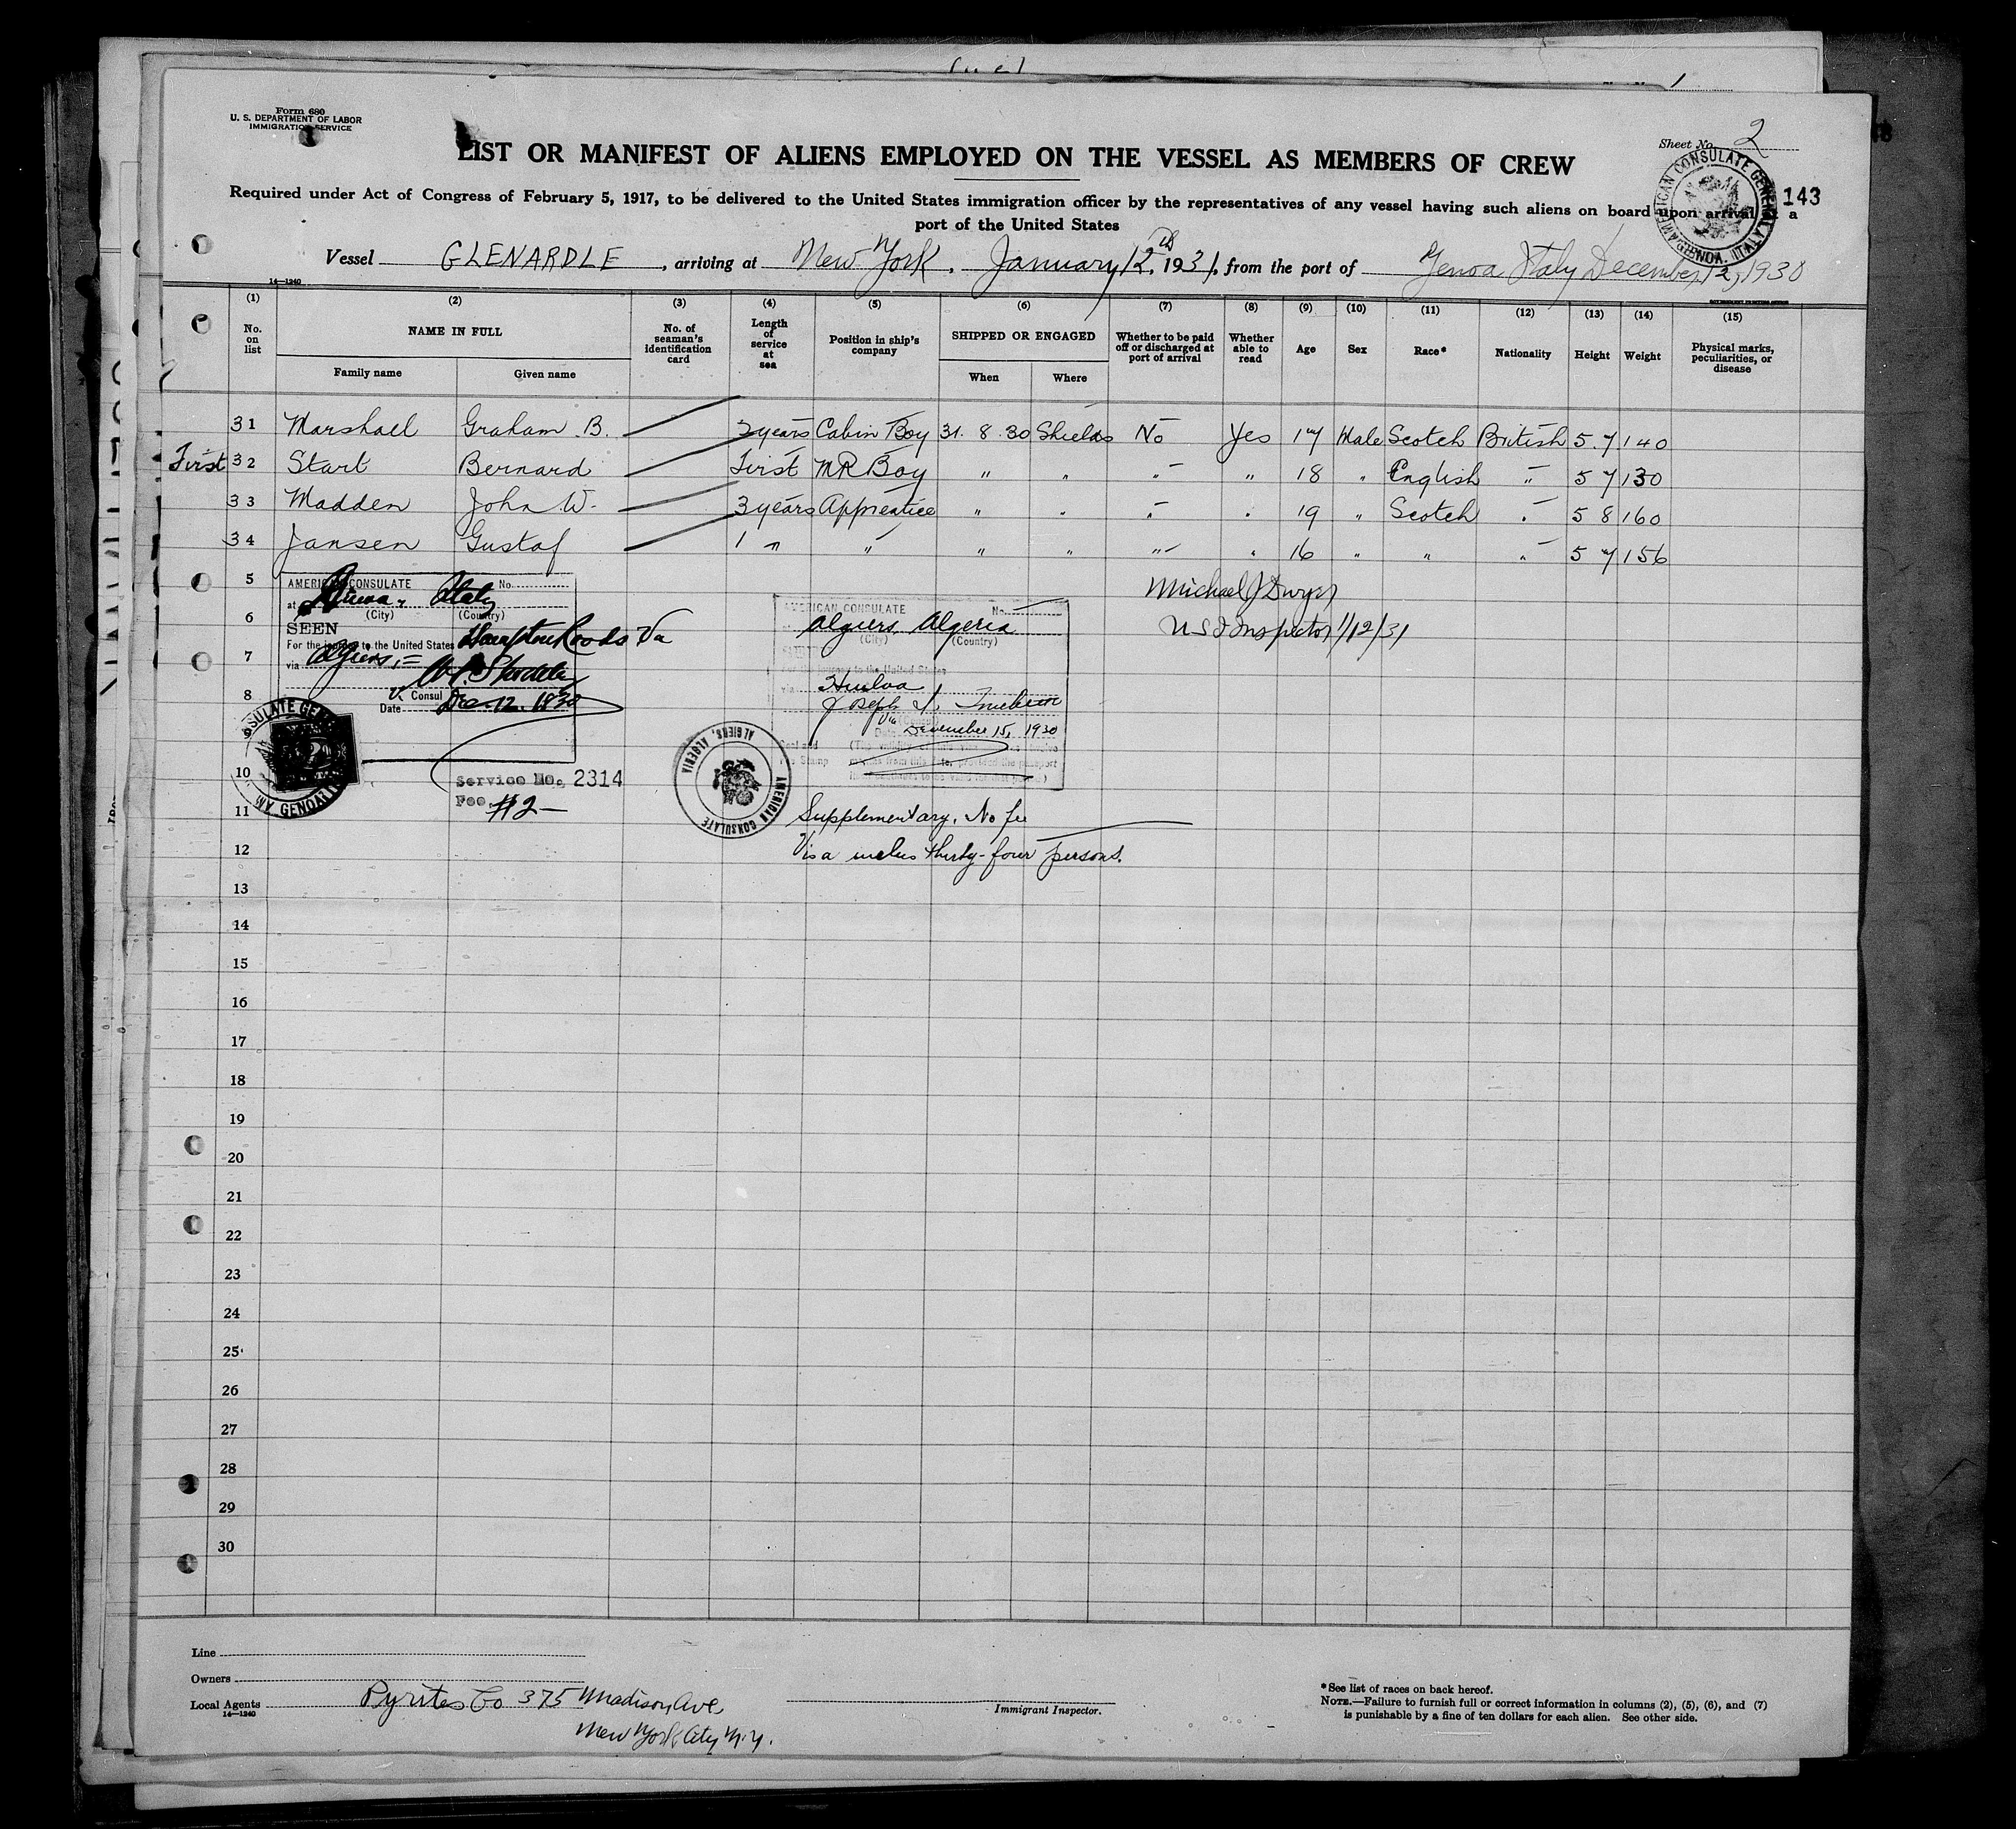 Form 680
U. S. DEPARTMENT OF LABOR
IMMIGRATION SERVICE
Sheet No. 2
LIST OR MANIFEST OF ALIENS EMPLOYED ON THE VESSEL AS MEMBERS OF CREW
143
Required under Act of Congress of February 5, 1917, to be delivered to the United States immigration officer by the representatives of any vessel having such aliens on board upon arrival at a
port of the United States
AMERICAN CONSULATE GENERAL GENOA, ITALY
Vessel GLENARDLE, arriving at New York, January 12th, 1931, from the port of Genoa Italy December, 12, 1930
14—1240
(1) (2) (3) (4) (5) (6) (7) (8) (9) (10) (11) (12) (13) (14) (15)
No. on list NAME IN FULL No. of seaman's identification card Length of service at sea Position in ship's company SHIPPED OR ENGAGED Whether to be paid off or discharged at port of arrival Whether able to read Age Sex Race* Nationality Height Weight Physical marks, peculiarities, or disease
Family name Given name When Where
31 Marshall Graham. B. 2 years Cabin Boy 31. 8. 30 Shields No Yes 17 Male Scotch British 5. 7. 140
First 32 Start Bernard First MR Boy " " " " 18 " English " 5 7 130
33 Madden John W. 3 years Apprentice " " " " 19 " Scotch " 5 8 160
34 Jansen Gustaf 1 " " " " " " 16 " " " 5 7 156
5
6
7
8
10
11
12
13
14
15
16
17
18
19
20
21
22
23
24
25
26
27
28
29
30
AMERICAN CONSULATE No.
at Genoa, Italy
(City) (Country)
SEEN
For the journey to the United States Hampton Roads Va
via Algiers,
V. Consul
Date Dec. 12. 1930
Service No. 2314
Fee, $2—
AMERICAN CONSULATE No.
Algiers, Algeria
(City) (Country)
For the journey to the United States
via Huelva
Joseph I.
Date December 15, 1930
AMERICAN CONSULATE ALGIERS, ALGERIA
Supplementary. No fee
Visa inclus thirty-four persons.
Michael J Dwyer
U S I Inspector 1/12/31
Line
Owners
Local Agents Pyrites Co 375 Madison Ave
14—1240
New York City N.Y.
Immigrant Inspector.
*See list of races on back hereof.
NOTE.—Failure to furnish full or correct information in columns (2), (5), (6), and (7)
is punishable by a fine of ten dollars for each alien. See other side.